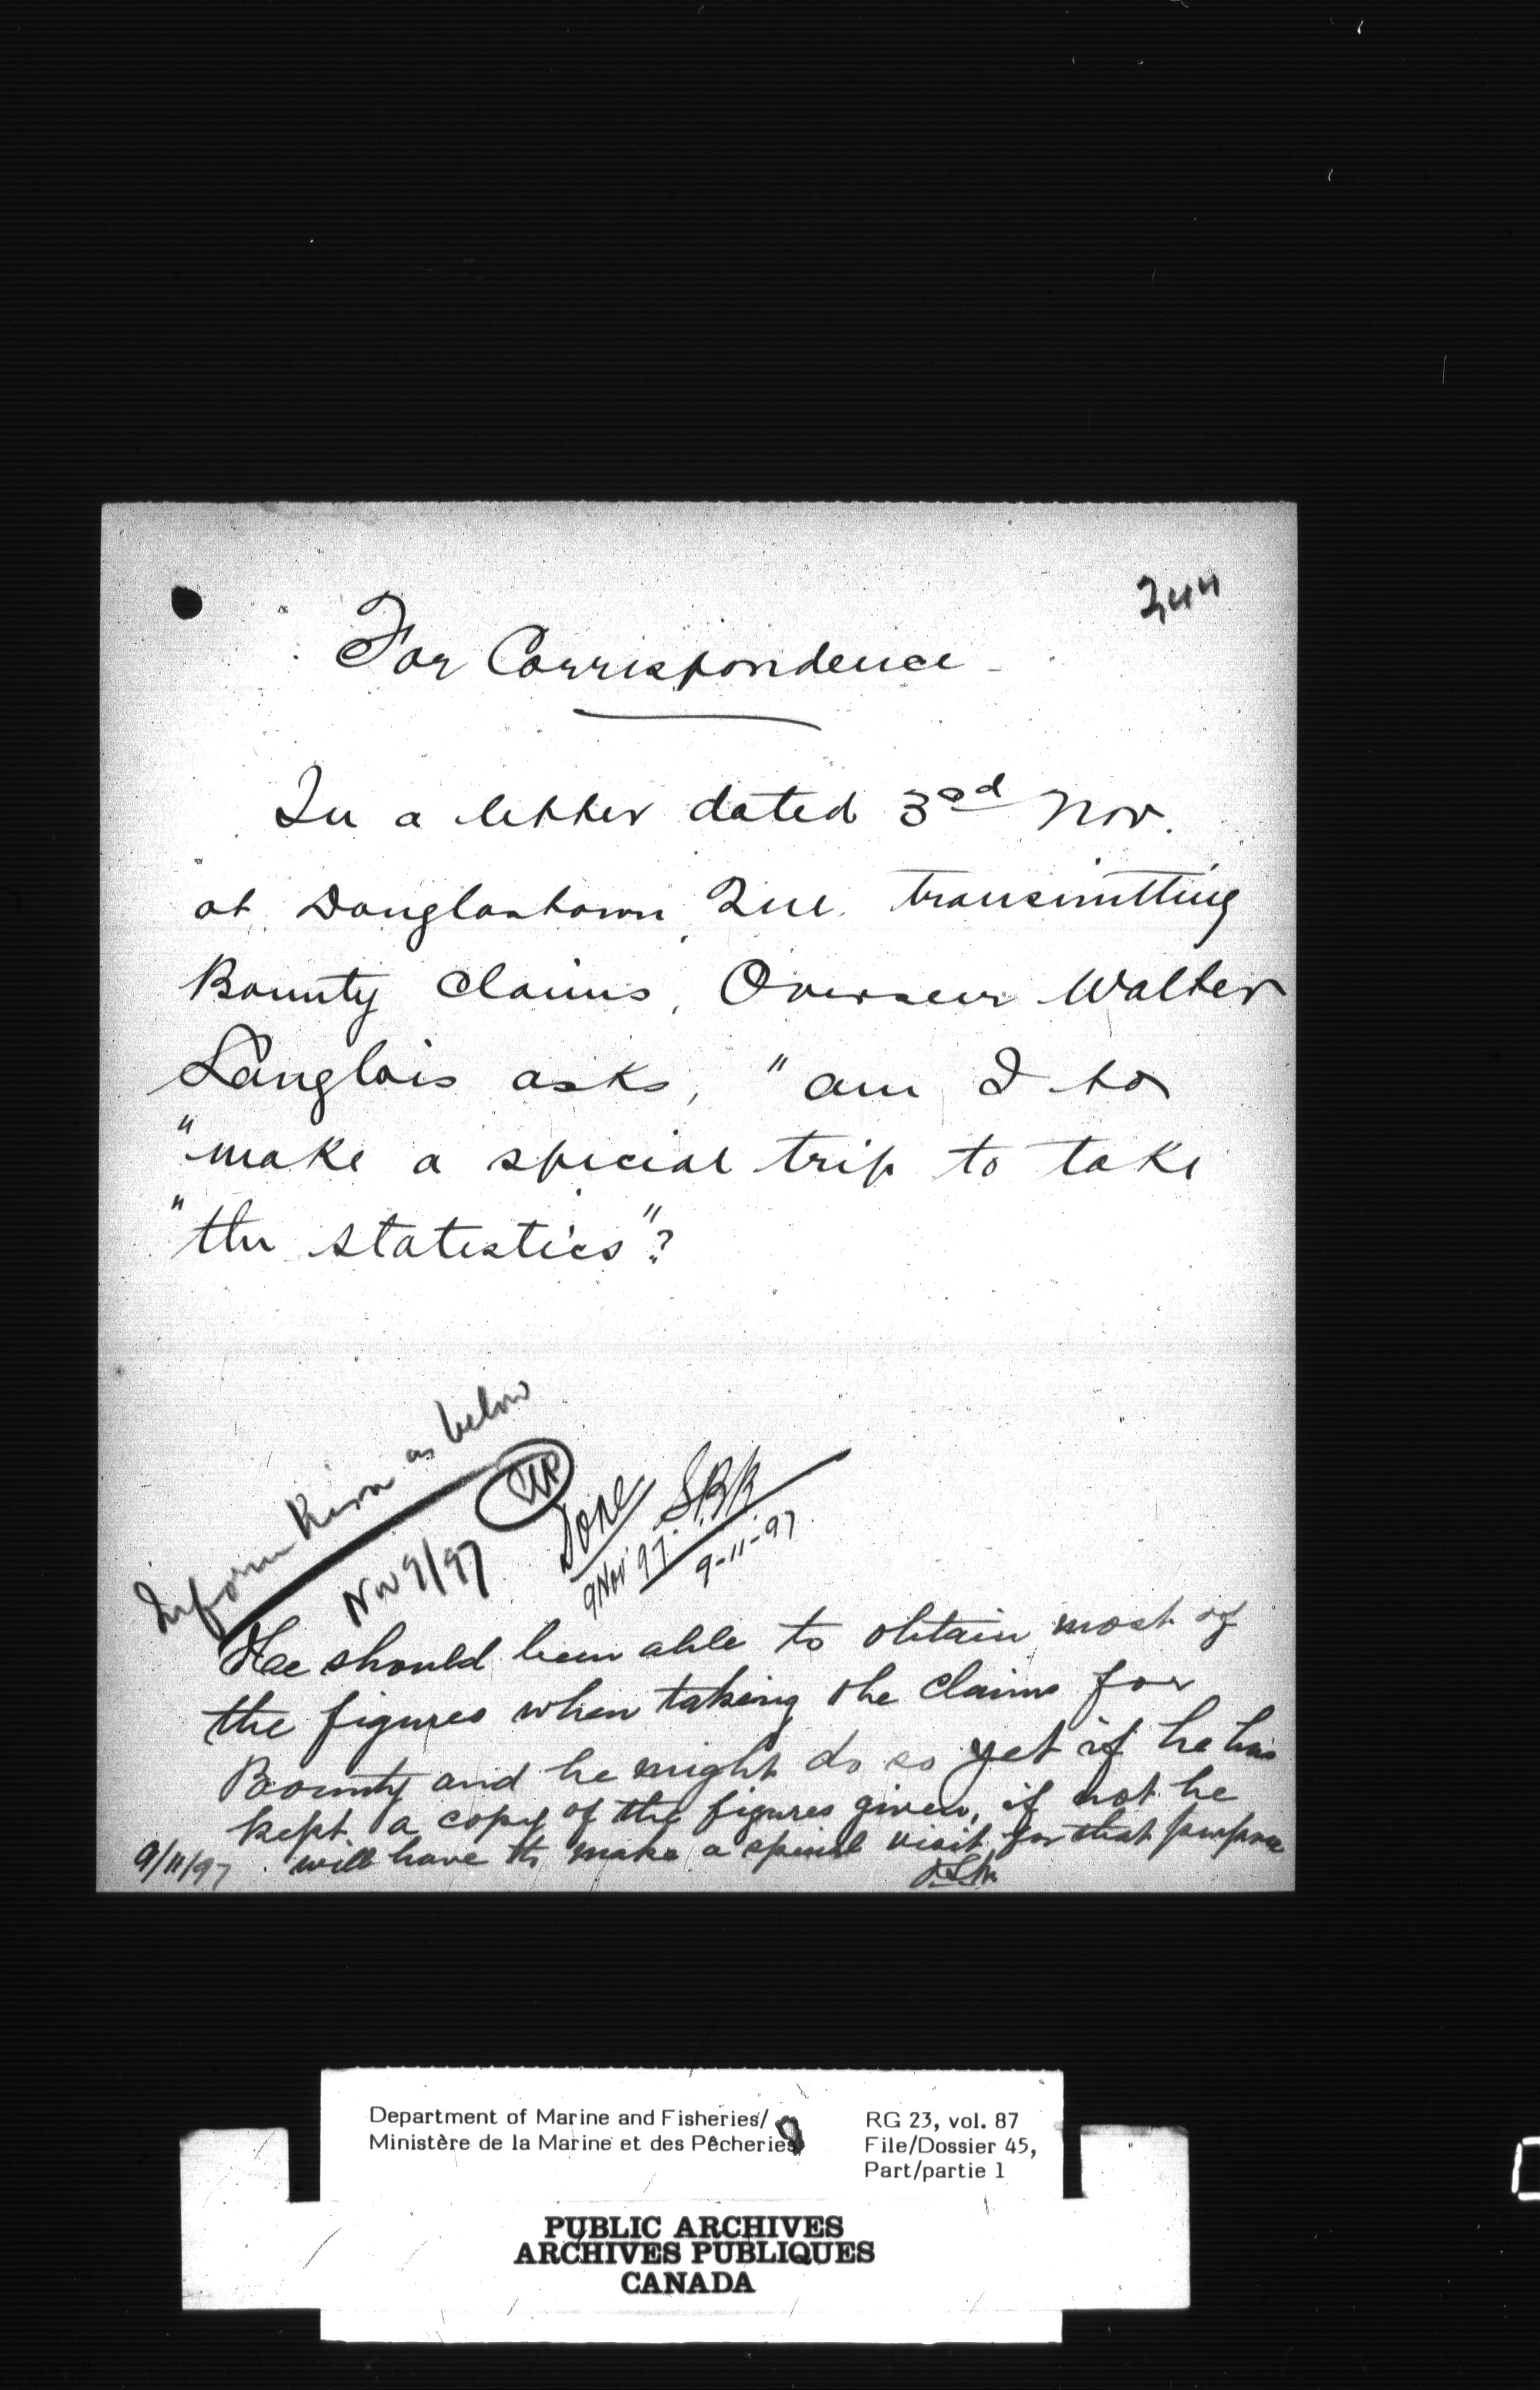 244
For Correspondence
In a letter dated 3rd Nov.
at Douglastown, Que. transmitting
Bounty claims, Overseer Walter
Langlois asks, "am I to
"make a special trip to take
"the statistics"?
Inform him as below
Nov 9/97
Done
9 Nov 97.
9-11-97
He should been able to obtain most of
the figures when taking the claims for
Bounty and he might do so yet if he has
kept a copy of the figures given, if not he
will have to make a special visit for that purpose
9/11/97
Department of Marine and Fisheries/
Ministère de la Marine et des Pêcheries
RG 23, vol. 87
File/Dossier 45,
Part/partie 1
PUBLIC ARCHIVES
ARCHIVES PUBLIQUES
CANADA